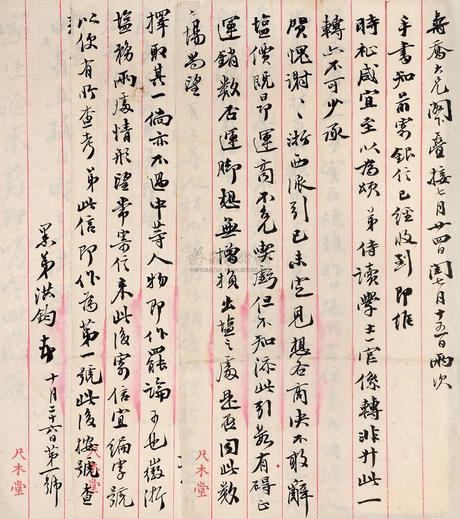 壽喬大兄閣下疊接七月廿四日閏七月十五日兩次
手書知前寄銀信已經收到即維
時祉咸宜至以為頌弟侍讀學士一官係轉非升此一
轉亦不可少承
賜愧謝〻浙西派引已未定見想各商決不敢辭
鹽價既昂運商不免喫虧但不知添此引數有礙正
運銷數否運腳想無增損出鹽之處是否因此數
場為望
擇取其一倘亦不過中等人物即作罷論可也徽浙
鹽務兩處情形望常寄信來此後寄信宜編字號
以便有所查考弟此信即作為第一號此後按號查
愚弟洪鈞
十月二十六日第一號
尺木堂
尺木堂
尺木堂